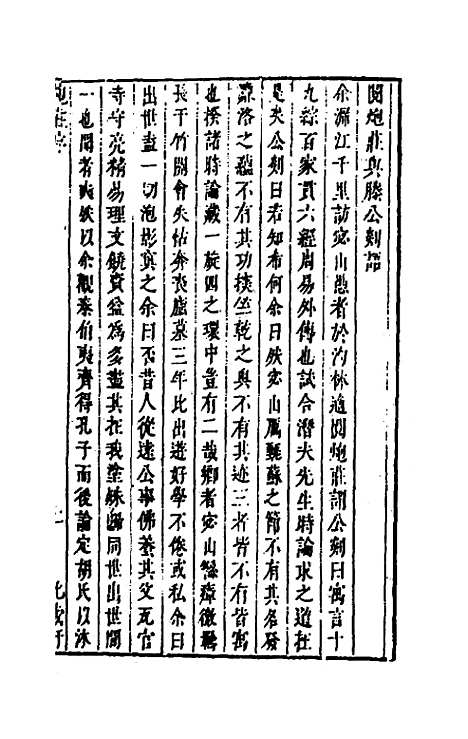 閱炮莊與滕公剡語
余溯江千里訪宓山愚者於汋林適閱炮莊謂公剡曰寓言十
九綜百家貫六經周易外傳也試合潛夫先生時論求之道在
是矣公剡曰若知布何余曰然宓山厲甦蘇之節不有其名發
濂洛之蘊不有其功接竺乾之與不有其迹三者皆不有皆寓
也揆諸時論藏一旋四之環中豈有二哉鄉者宓山徽
長干竹關會失怙奔喪廬墓三年比出遊好學不倦或私余曰
出世盡一切泡影寘之余曰否昔人從遠公學佛養其父瓦官
寺守亮精易理文饒資益為多盡其在我塗同世出世間
一也聞者爽然以余觀泰伯夷齊得孔子而後論定胡氏以泳
炮莊序